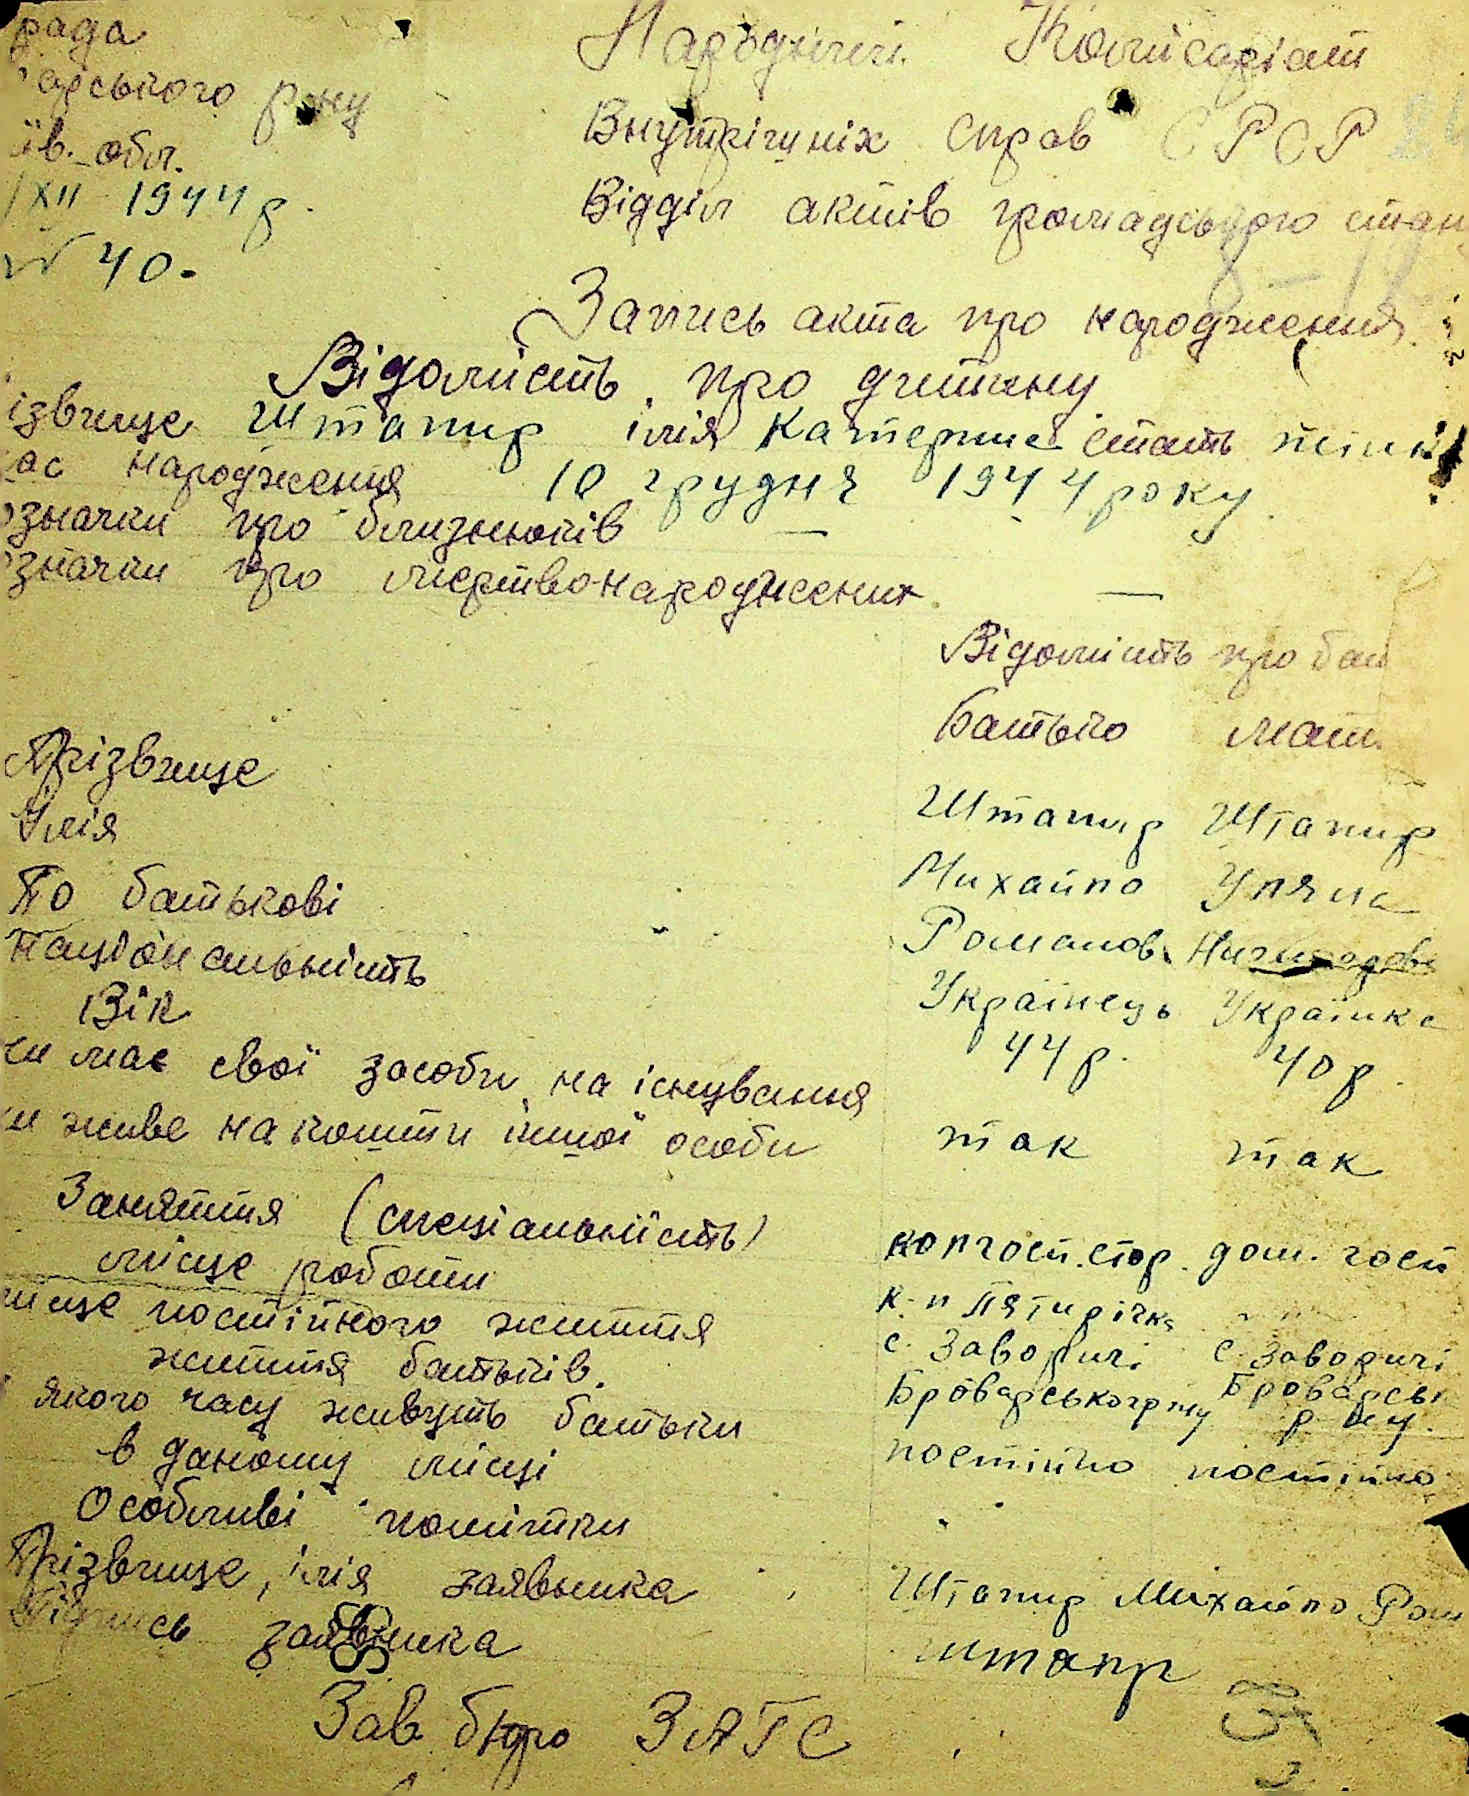 рада
арського р-ну
їв. обл.
XII 1944 р.
№ 40.
Народний Комісаріат
Внутрішніх справ СРСР
Відділ актів громадського стан
Запись акта про народження
Відомість про дитину
ізвище Штапир імія Катерина стать жіно
ас народження 10 грудня 1944 року
значки про близнюків —
значки про мертвонароджених —
Відомість про бат
Батько мати
Прізвище Штапир Штапир
Імія Михайло Уляна
По батькові Романов. Ничипоровн
Національність Українець Українка
Вік 44 р. 40 р.
чи має свої засоби на існування
чи живе на кошти іншої особи так так
Заняття (спеціальність) колгосп. стор. дом. госп
місце роботи к-п Пятирічка
місце постійного життя с. Заворичі с. Заворичі
життя батьків. Броварського р-ну Броварськ р-ну.
якого часу живуть батьки
в даному місці постійно постійно
Особливі помітки
Прізвище, імія заявника Штапир Михайло Ром
Підпись заявника Штапир
Зав бюро ЗАГС